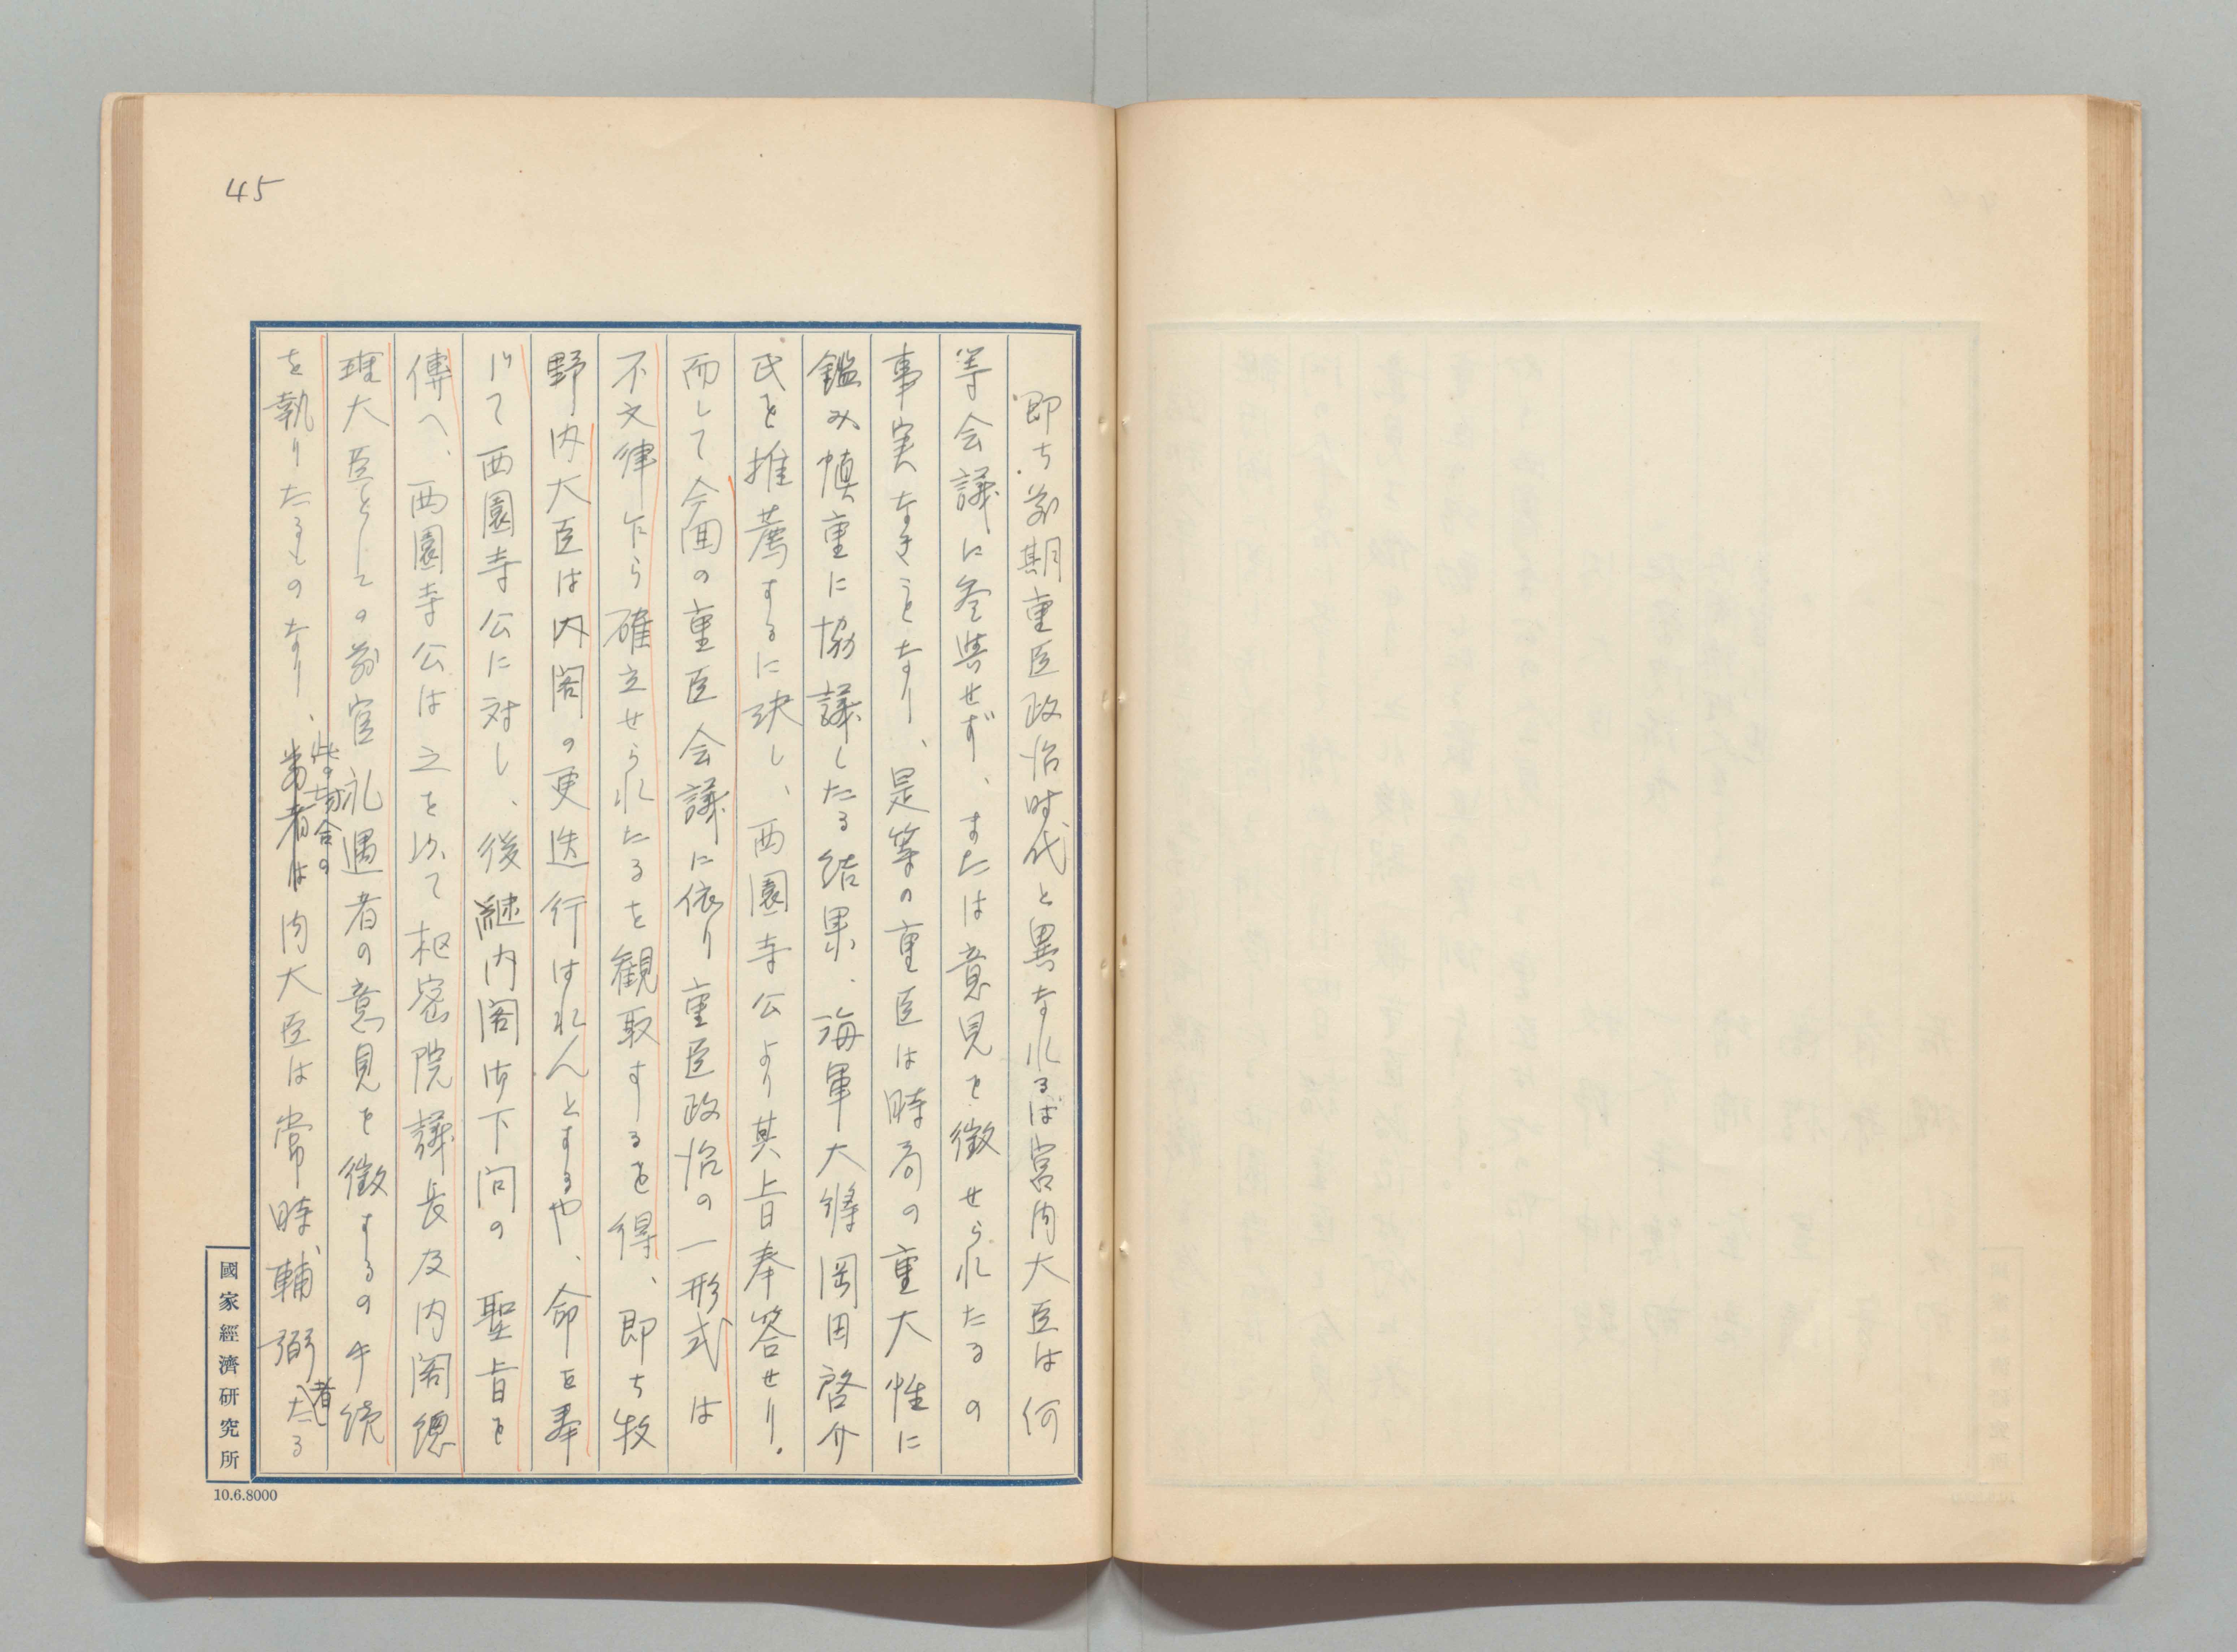 45
即ち前期重臣政治時代と異なれるは宮内大臣は何
等会議に参與せず、または意見を徴せられたるの
事実なきことなり、是等の重臣は時局の重大性に
鑑み慎重に協議したる結果、海軍大将岡田啓介
氏を推薦するに決し、西園寺公より其旨奉答せり。
而して今囬の重臣会議に依り重臣政治の一形式は
不文律乍ら確立せられたるを観取するを得、即ち牧
野内大臣は内閣の更迭行はれんとするや、命を奉
じて西園寺公に対し、後継内閣御下问の 聖旨を
傳へ、西園寺公は之を以て枢密院議長及内閣總
理大臣としての前官礼遇者の意見を徴するの手続
を執りたるものなり、此の場合の内大臣は常時輔弼者たる
國家經濟研究所
10.6.8000